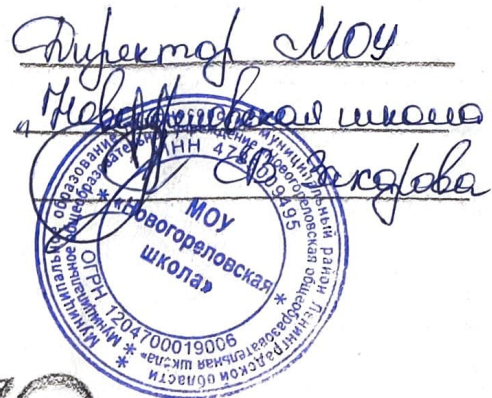 Директор МОУ
Новогореловская школа
Захарова
МОУ
«Новогореловская
школа»
ОГРН 1204700019006
ИНН 47
9495
Муниципальное общеобразовательное учреждение «Новогореловская общеобразовательная школа»
Муниципальное образование
муниципальный район Ленинградской области